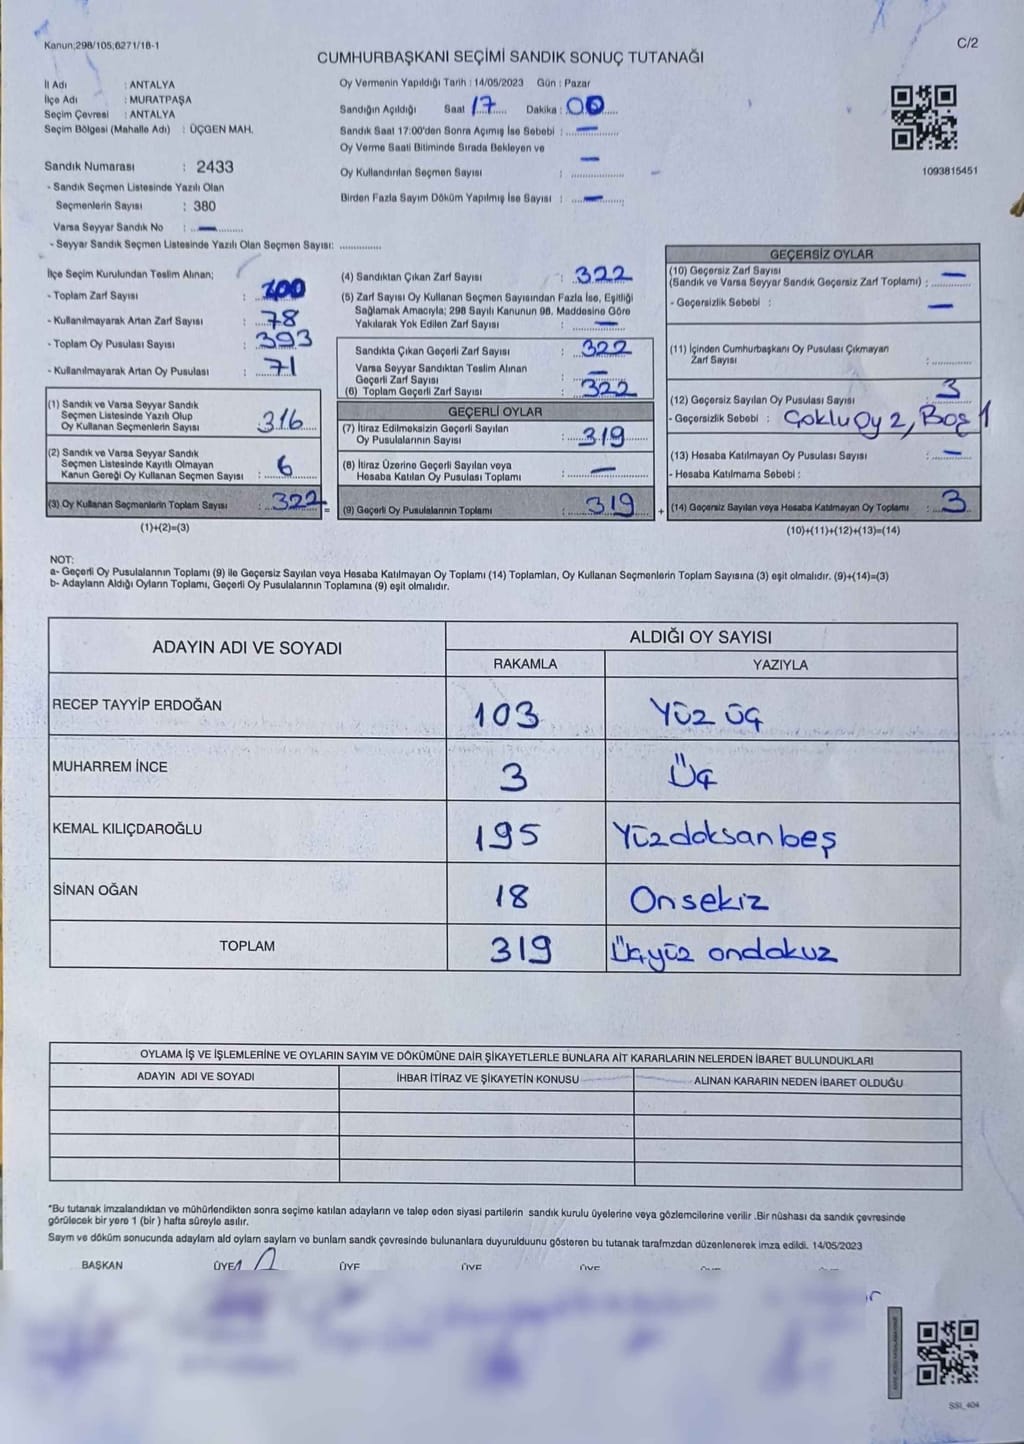 Kanun;298/105;6271/18-1
C/2
CUMHURBAŞKANI SEÇİMİ SANDIK SONUÇ TUTANAĞI
İl Adı : ANTALYA
İlçe Adı : MURATPAŞA
Seçim Çevresi : ANTALYA
Seçim Bölgesi (Mahalle Adı) : ÜÇGEN MAH.
Oy Vermenin Yapıldığı Tarih : 14/05/2023 Gün : Pazar
Sandığın Açıldığı Saat 17 Dakika : 00
Sandık Saat 17:00'den Sonra Açımış İse Sebebi : —
Oy Verme Saati Bitiminde Sırada Bekleyen ve
Oy Kullandırılan Seçmen Sayısı : —
Birden Fazla Sayım Döküm Yapılmış İse Sayısı : —
1093815451
Sandık Numarası : 2433
- Sandık Seçmen Listesinde Yazılı Olan
Seçmenlerin Sayısı : 380
Varsa Seyyar Sandık No : —
- Seyyar Sandık Seçmen Listesinde Yazılı Olan Seçmen Sayısı: ..............
İlçe Seçim Kurulundan Teslim Alınan;
- Toplam Zarf Sayısı :
- Kullanılmayarak Artan Zarf Sayısı : 78
- Toplam Oy Pusulası Sayısı : 393
- Kullanılmayarak Artan Oy Pusulası : 71
(1) Sandık ve Varsa Seyyar Sandık
Seçmen Listesinde Yazılı Olup
Oy Kullanan Seçmenlerin Sayısı : 316
(2) Sandık ve Varsa Seyyar Sandık
Seçmen Listesinde Kayıtlı Olmayan
Kanun Gereği Oy Kullanan Seçmen Sayısı : 6
(3) Oy Kullanan Seçmenlerin Toplam Sayısı : 322 =
(1)+(2)=(3)
(4) Sandıktan Çıkan Zarf Sayısı : 322
(5) Zarf Sayısı Oy Kullanan Seçmen Sayısından Fazla İse, Eşitliği
Sağlamak Amacıyla; 298 Sayılı Kanunun 98. Maddesine Göre
Yakılarak Yok Edilen Zarf Sayısı : —
Sandıkta Çıkan Geçerli Zarf Sayısı : 322
Varsa Seyyar Sandıktan Teslim Alınan
Geçerli Zarf Sayısı : —
(6) Toplam Geçerli Zarf Sayısı : 322
GEÇERLİ OYLAR
(7) İtiraz Edilmeksizin Geçerli Sayılan
Oy Pusulalarının Sayısı : 319
(8) İtiraz Üzerine Geçerli Sayılan veya
Hesaba Katılan Oy Pusulası Toplamı : —
(9) Geçerli Oy Pusulalarının Toplamı : 319 +
GEÇERSİZ OYLAR
(10) Geçersiz Zarf Sayısı
(Sandık ve Varsa Seyyar Sandık Geçersiz Zarf Toplamı) : —
- Geçersizlik Sebebi : —
(11) İçinden Cumhurbaşkanı Oy Pusulası Çıkmayan
Zarf Sayısı : ............
(12) Geçersiz Sayılan Oy Pusulası Sayısı : 3
- Geçersizlik Sebebi : Çoklu Oy 2, Boş 1
(13) Hesaba Katılmayan Oy Pusulası Sayısı : —
- Hesaba Katılmama Sebebi :
(14) Geçersiz Sayılan veya Hesaba Katılmayan Oy Toplamı : 3
(10)+(11)+(12)+(13)=(14)
NOT:
a- Geçerli Oy Pusulalarının Toplamı (9) ile Geçersiz Sayılan veya Hesaba Katılmayan Oy Toplamı (14) Toplamları, Oy Kullanan Seçmenlerin Toplam Sayısına (3) eşit olmalıdır. (9)+(14)=(3)
b- Adayların Aldığı Oyların Toplamı, Geçerli Oy Pusulalarının Toplamına (9) eşit olmalıdır.
ADAYIN ADI VE SOYADI
ALDIĞI OY SAYISI
RAKAMLA YAZIYLA
RECEP TAYYİP ERDOĞAN 103 Yüz üç
MUHARREM İNCE 3 Üç
KEMAL KILIÇDAROĞLU 195 Yüzdoksanbeş
SİNAN OĞAN 18 Onsekiz
TOPLAM 319 Üçyüz ondokuz
OYLAMA İŞ VE İŞLEMLERİNE VE OYLARIN SAYIM VE DÖKÜMÜNE DAİR ŞİKAYETLERLE BUNLARA AİT KARARLARIN NELERDEN İBARET BULUNDUKLARI
ADAYIN ADI VE SOYADI İHBAR İTİRAZ VE ŞİKAYETİN KONUSU ALINAN KARARIN NEDEN İBARET OLDUĞU
*Bu tutanak imzalandıktan ve mühürlendikten sonra seçime katılan adayların ve talep eden siyasi partilerin sandık kurulu üyelerine veya gözlemcilerine verilir .Bir nüshası da sandık çevresinde
görülecek bir yere 1 (bir ) hafta süreyle asılır.
Sayım ve döküm sonucunda adayların ald oyların sayların ve bunların sandk çevresinde bulunanlara duyurulduunu gösteren bu tutanak tarafmzdan düzenlenerek imza edildi. 14/05/2023
BAŞKAN ÜYE ÜYE ÜYE ÜYE
SSI_404